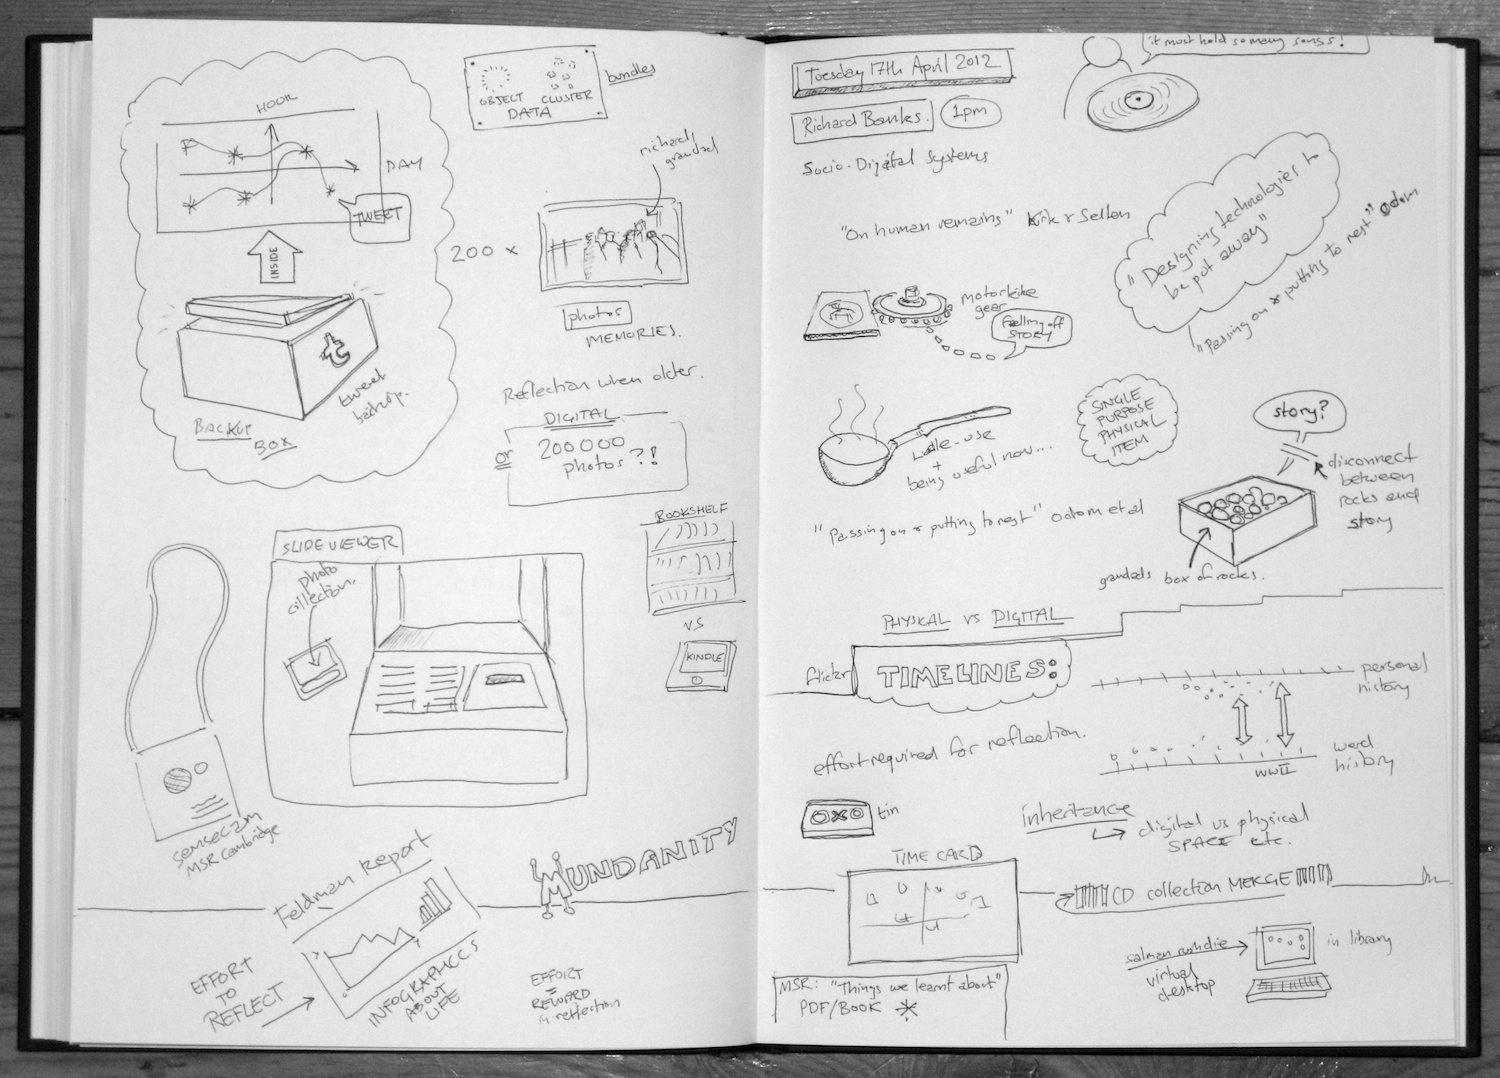 HOOK
DAY
TWEET
INSIDE
tweet
backup.
BACKUP
BOX
OBJECT
CLUSTER
DATA
bundles
richard/
grandad
200 x
photos
MEMORIES.
Reflection when older.
DIGITAL
or
200000
photos?!
SLIDEVIEWER
photo
collection.
BOOKSHELF
VS
KINDLE
sensecam
MSR Cambridge
Feldman Report
MUNDANITY
EFFORT
TO
REFLECT
INFOGRAPHICS
ABOUT
LIFE
EFFORT
=
REWARD
reflection
Tuesday 17th April 2012
Richard Banks.
1pm
Socio-Digital Systems
it must hold so many songs!
"On human remaining" Kirk & Sellen
"Designing technologies to
be put away"
"Passing on & putting to rest" Odom
motorbike
gear
falling off
STORY
SINGLE
PURPOSE
PHYSICAL
ITEM
use
+
being useful now...
story?
disconnect
between
rocks and
story
"Passing on & putting to rest" Odom et al
grandads box of rocks.
PHYSICAL VS DIGITAL
flickr
TIMELINES:
personal
history
effort required for reflection.
WWII
world
history
tin
inheritance
digital vs physical
SPACE etc.
TIMECARD
CD collection MERGE
salman rushdie
virtual
desktop
in library
MSR: "Things we learnt about"
PDF/BOOK *